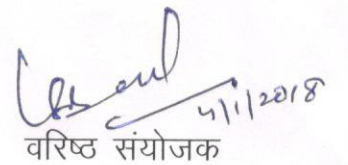 4/1/2018
वरिष्ठ संयोजक